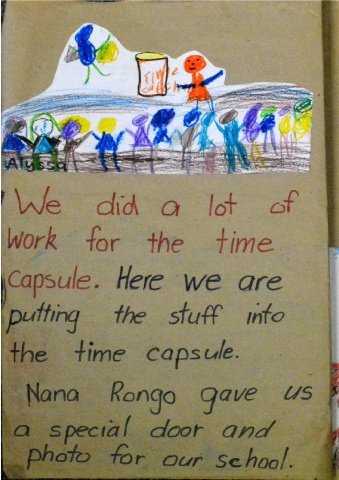 Time
Alyssa
We did a lot of
Work for the time
Capsule. Here we are
putting the stuff into
the time capsule.
Nana Rongo gave us
a special door and
photo for our school.